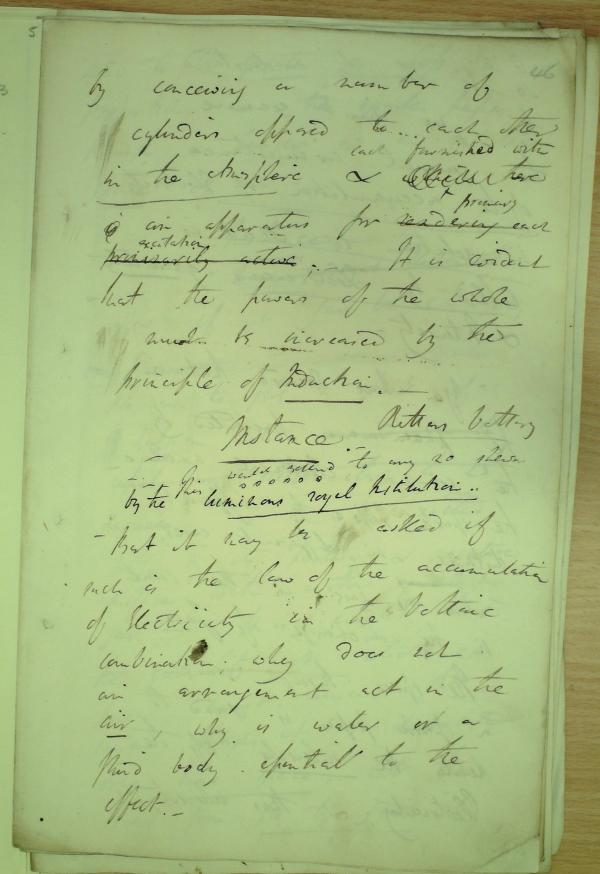 46
by conceiving a number of
cylinders opposed to each other
in the atmosphere & each furnished with
an apparatus for rendering primary each
primarily active excitation ;– It is evident
that the powers of the whole
must be increased by the
principle of Induction. –
Instance Ritters battery
– This would extend to any no shewn
by the luminous royal Institution..
– But it may be asked if
such is the law of the accumulation
of Electricity in the Voltaic
combination. why does not
an arrangement act in the
air, why is water or a
fluid body essential to the
effect. –